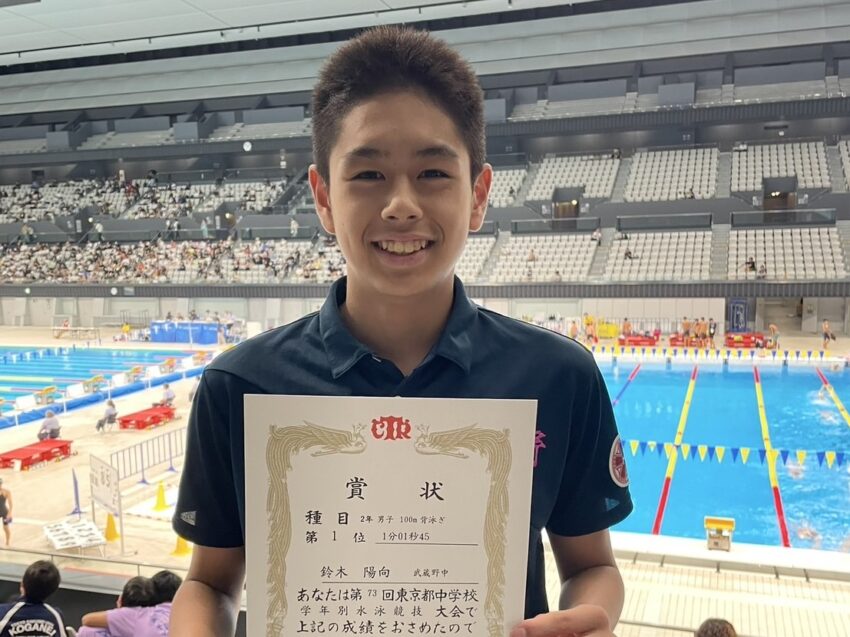 賞状
種目 2年 男子 100m 背泳ぎ
第1位 1分01秒45
鈴木 陽向 武蔵野中
あなたは第73回東京都中学校
学年別水泳競技大会で
上記の成績をおさめたので
KOGANEI